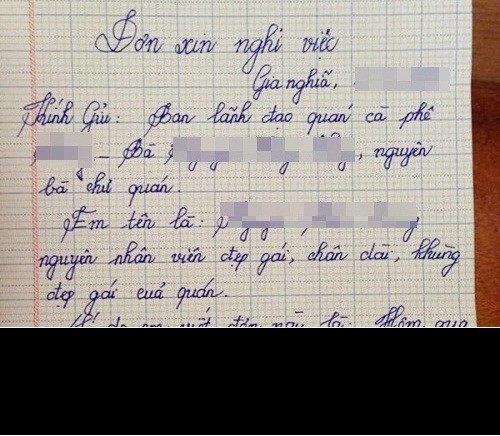 Đơn xin nghỉ việc
Gia nghĩa,
Kính Gửi: Ban lãnh đạo quán cà phê
– Bà , nguyên
bà chủ quán.
Em tên là:
nguyên nhân viên đẹp gái, chân dài, khủng
đẹp gái của quán.
Lí do em viết đơn này là: Hôm qua